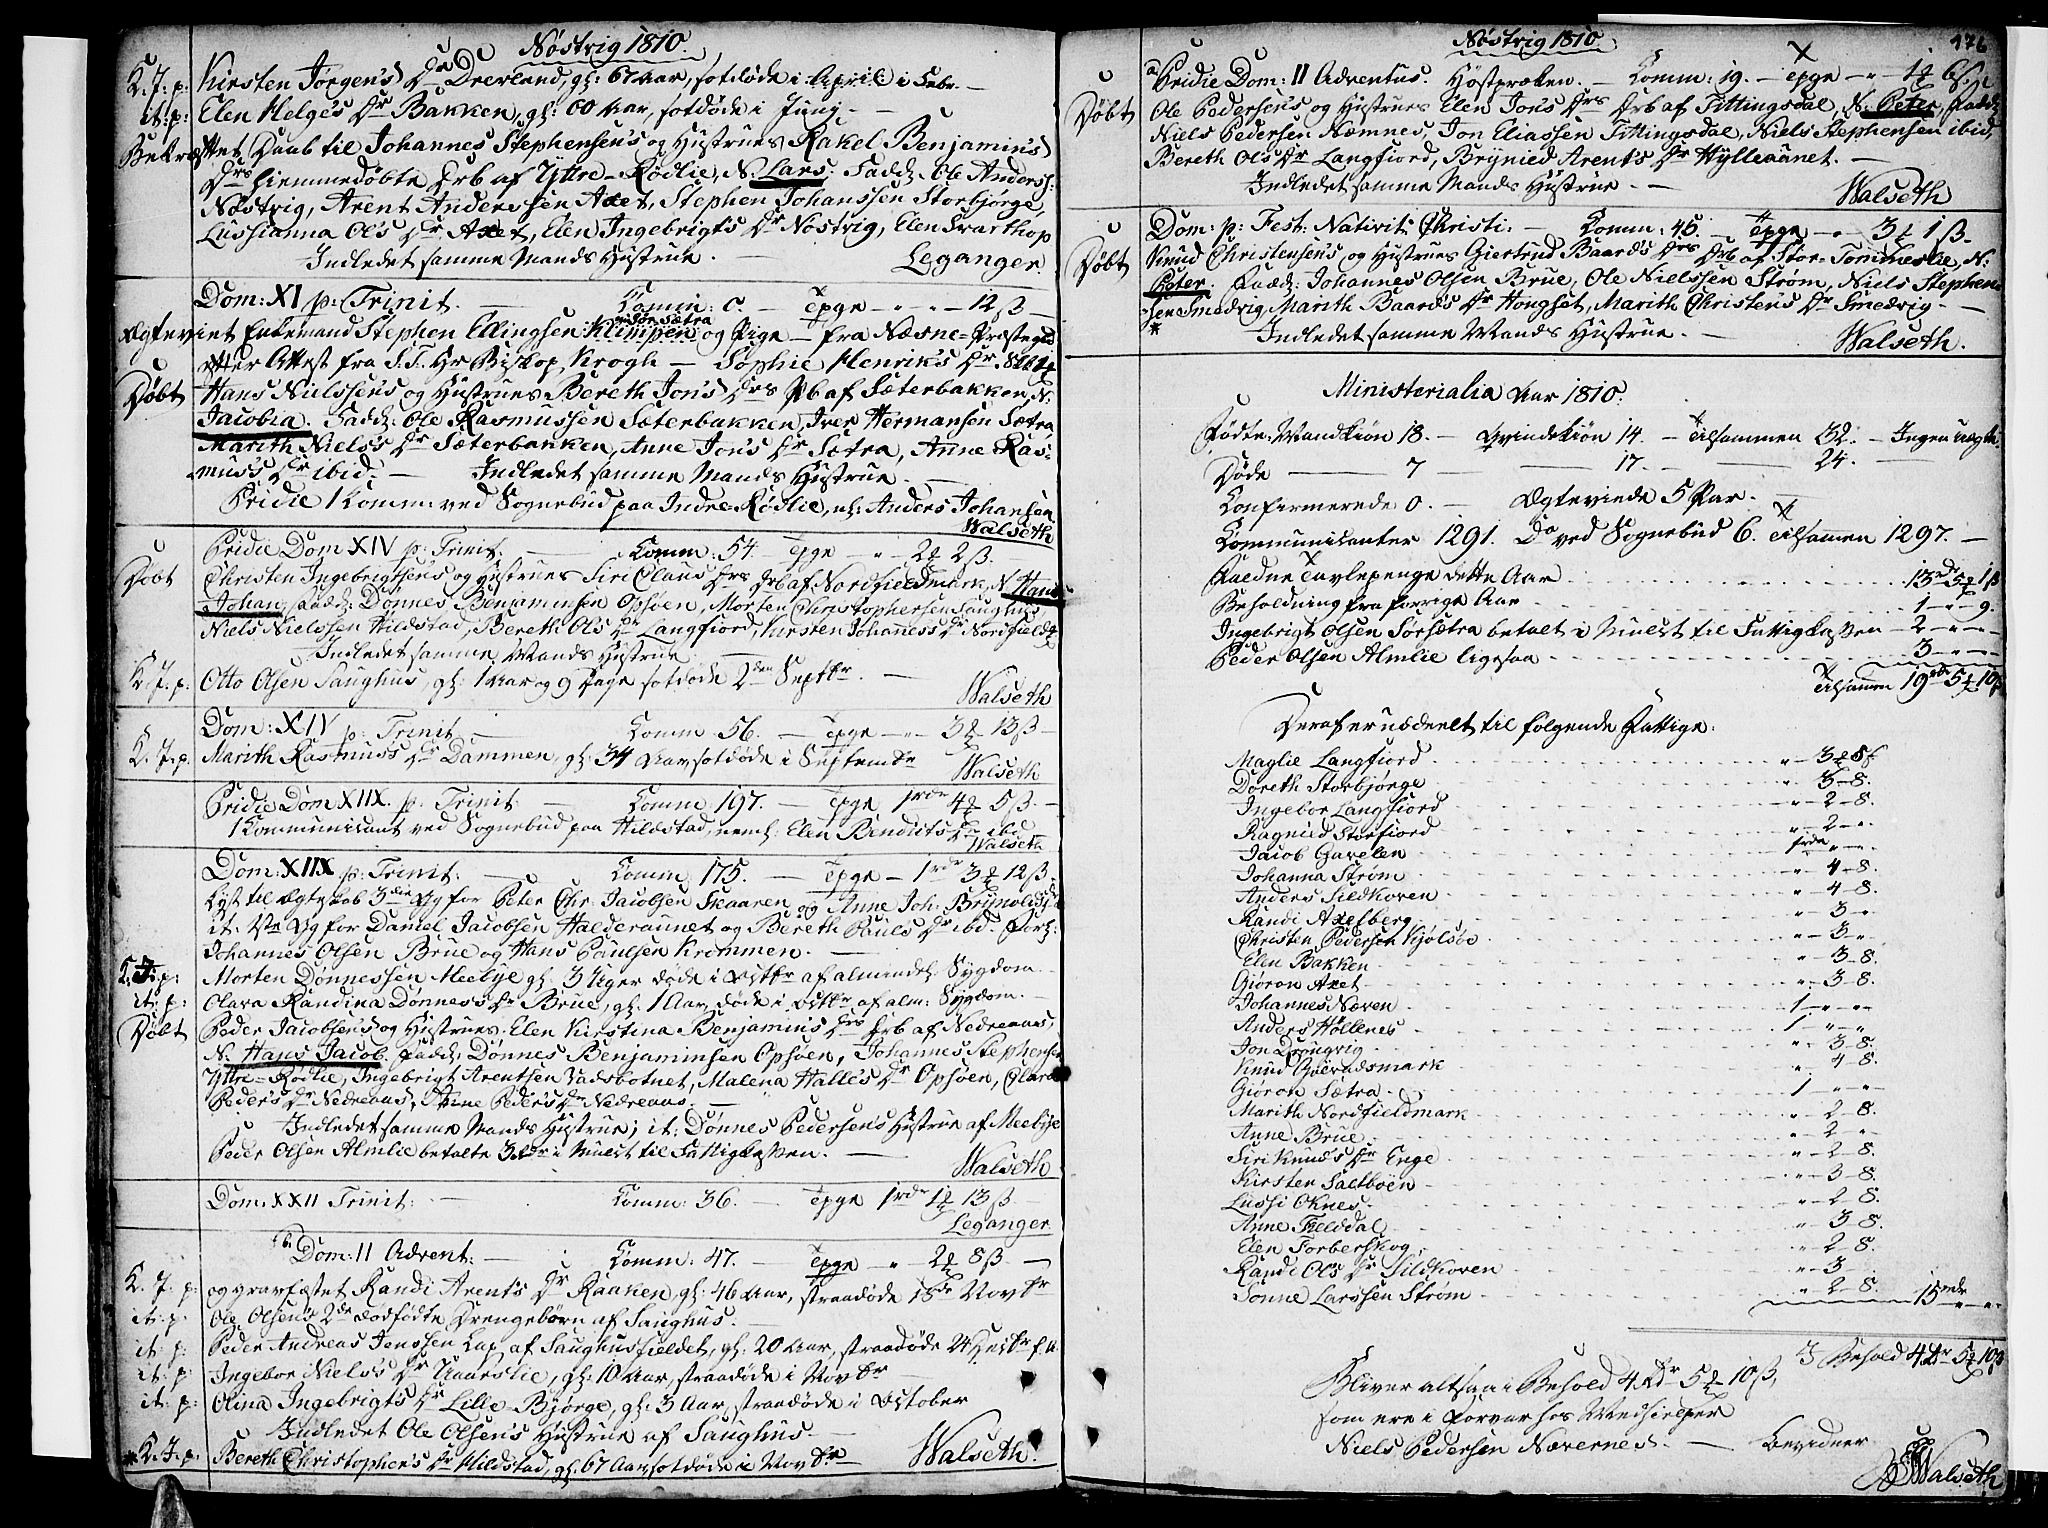 Nöstvig 1810.
K. J. p: Kirsten Jørgens Dr Dreeland, gl: 67 Aar, sotdøde i April i Febr. —
it: p: Elen Helge's Dr Bakken, gl: 60 Aar, sotdøde i Junj —
Bekræftet Daab til Johannes Stephensen's og Hustrues Rakel Benjamin's
Drs hiemmedøbte Drb af Yttre-Rödlie, N. Lars. Fadd: Ole Anderss:
Nöstvig, Arent Anderssen Axet, Stephen Johanssen Storbjorge,
Lussianna Ol's Dr Axet, Elen Ingebrigt's Dr Nöstvig, Elen
Indledet samme Mands Hustrue. — Leganger.
Dom: XI p: Trinit. — Comm: 0. — Tpge " " 12 ß
Ægteviet Enkemand Stephen Ellingsen Klimpen og Pige — fra Næsne-Præstegield
efter Attest fra S. T. Hr Biskop Krogh — Sophie Henrik's Dr
Döbt Hans Nielssen's og Hustrues Bereth Jon's Drs Pb af Sæterbakken, N:
Jacobia. Fadd: Ole Rasmussen Sæterbakken, Iver Hermansen Sætra
Marith Niels's Dr Sæterbakken, Anne Jon's Dr Sætra, Anne Ras-
mus's Dr ibid: — Indledet samme Mands Hustrue. —
Pridie 1 Komm: ved Sognebud paa Indre-Rödlie, nl: Anders Johansen
Walseth
Pridie Dom XIV p: Trinit: — Komm: 54. — Tpge — " — 2 2 ß.
Döbt Christen Ingebrigtsen's og Hustrues Siri Claus Drs Drb af Nordfieldmark, N. Hans
Johan, Fadd: Dönnes Benjaminsen Opsöen, Morten Christophersen Sanghus,
Niels Nielssen Hildstad, Bereth Ols Dr Langfiord, Kirsten Johanness Dr Nordfield
Indledet samme Mands Hustrue
K. J. p. Otto Olsen Sanghus, gl: 1 Aar og 9 Dage sotdøde 2den Septbr. —
Walseth
Dom: XIV p: Trinit. — Comm 56. — Tpge — " — 3 13 ß
K. J. p. Marith Rasmuss Dr Dammen, gl: 34 Aar sotdøde i Septembr
Walseth
Pridie Dom XIIX. p: Trinit: — Komm 197. — Tpge 1 rdr 4 5 ß. —
1 Kommunicant ved Sognebud paa Hildstad, neml: Elen Bendicts Dr ibd.
Walseth
Dom: XIIX p: Trinit: — Comm: 175. — Tpge — 1 rdr 3 12 ß.
Lyst til Ægteskab 3die Gg for Peter Chr: Jacobsen Skaaren og Anne Joh: Brynolds
it: for Daniel Jacobsen Halderaunet og Bereth Pauls Dr ibd. Forl:
Johannes Olsen Brue og Hans Paulsen Krommen. —
K. J. p: Morten Dönnessen Meebye gl: 3 Uger døde i Octbr af almindel: Sygdom
it: p: Olava Randina Dönness Dr Brue, gl: 1 Aar, døde i Octbr af alm: Sygdom. —
Döbt Peder Jacobsen's og Hustrues Elen Kirstina Benjamins Drs Drb af Nedreaas,
N. Hans Jacob. Fadd: Dönnes Benjaminsen Opsöen, Johannes Stephensen
Yttre-Rödlie, Ingebrigt Arentsen Vadsbotnet, Malena Halle's Dr Opsöen, Clara
Peder's Dr Nedreaas, Anne Peder's Dr Nedreaas. —
Indledet samme Mands Hustrue; it: Dönnes Pedersen's Hustrue af Meebye
Peder Olsen Almlie betalte 3 rdr i Mulct til Fattigkassen. —
Walseth
Dom: XXII Trinit: — Comm: 36. — Tpge 1 rdr 1 13 ß
Leganger
Dom: II Advent: — Comm: 47. — Tpge — " 2 8 ß —
K. J. p: og gravfæstet Randi Arent's Dr Raaken, gl: 46 Aar, straadøde 18de Novbr
it: p. Ole Olsen's 2de dødfødte Drengebörn af Sanghus. —
it: p: Peder Andreas Jenssen Lap af Sanghusfieldet, gl: 20 Aar, straadøde 24
it: p. Ingebor Niels's Dr Aaarslie, gl: 10 Aar, straadøde i Novbr —
it: p: Olina Ingebrigt's Dr Lille-Bjørge, gl: 3 Aar, straadøde i October
Indledet Ole Olsen's Hustrue af Sanghus. —
* K. J. p: Bereth Christophen's Dr Hildstad, gl: 67 Aar sotdøde i Novbr — Walseth.
Nöstvig 1810.
176
Pridie Dom: II Adventus. Höstprœken. — Komm: 19. — Tpge — " — 1 6 ß.
Döbt Ole Pedersen's og Hustrues Elen Jon's Drs Drb af Tittingsdal, N: Peter, Fadd:
Niels Pedersen Næmnes, Jon Eliassen Tittingsdal, Niels Stephensen ibid,
Bereth Ol's Dr Langfiord, Brynied Arent's Dr Hylleaunet. —
Indledet samme Mands Hustrue. —
Walseth
Dom: p: Fest: Nativit: Christi. — Komm: 45. — Tpge — " 3 1 ß.
Döbt Knud Christensen's og Hustrues Giertrud Baard's Drs Drb af Stor-Tommeslie, N:
Peter. Fadd: Johannes Olsen Brue, Ole Nielssen Strøm, Niels Stephen-
sen Smedvig, Marith Baard's Dr Hongset, Marith Christens Dr Smedvig. —
* Indledet samme Mands Hustrue —
Walseth.
Ministerialia Aar 1810.
Födte: Mandkiön 18. — Qvindekiön 14. — Tilsammen 32. — Ingen uægte
Döde — 7 — 17. — 24. —
Confirmerede 0. — Ægteviede 5 Par. —
Kommunicanter 1291. Do ved Sognebud 6. Tilsamen 1297. —
Faldne Tavlepenge dette Aar 13 rdr 5 1 ß
Beholdning fra forrige Aar 1 — " — 9.
Ingebrigt Olsen Sörsætra betalt i Mulct til Fattigkassen — 2 — " — " —
Peder Olsen Almlie ligesaa 3 — " — " —
Tilsamen 19 rdr 5 10 ß
Deraf er uddeelt til følgende Fattige:
Maglie Langfiord " 3 8 ß
Doreth Storbjørge " 3 – 8.
Ingebor Langfiord " 2 – 8.
Ragnied Storfiord " 2 – "
Jacob Gavelen 1 rdr " "
Johanna Strøm " 4 – 8.
Anders Sildkoven " 4 – 8.
Randi Axelberg " 3 – "
Christen Pedersen Kjølsöe " 3 – "
Elen Bakken " 3 – 8.
Gioron Axet " 3 – 8.
Johannes Næven 1 – " – "
Anders Höllenes 1 " "
Jon Drongvig " 3 – 8.
Knud Göivadsmark " 4 – 8.
Gioron Sætra 1 " "
Marith Nordfieldmark " 2 – 8.
Anne Brue " 2 "
Siri Knud's Dr Enge " 2 – 8.
Kirsten Saltboen " 3 – 8
Lussi Oknes " 2 – 8.
Anne Fielddal " 3 – 8.
Elen Forberskog " 2 – 8.
Randi Ols Dr Sildkoven " 3 –
Sonne Larssen Strøm " 2 – 8. 15 rdr " "
I Behold 4 rdr 5 10 ß
Bliver altsaa i Behold 4 rdr 5 10 ß,
som ere i Forvar hos Medhielper
Niels Pedersen Nævernes. — bevidner
Walseth